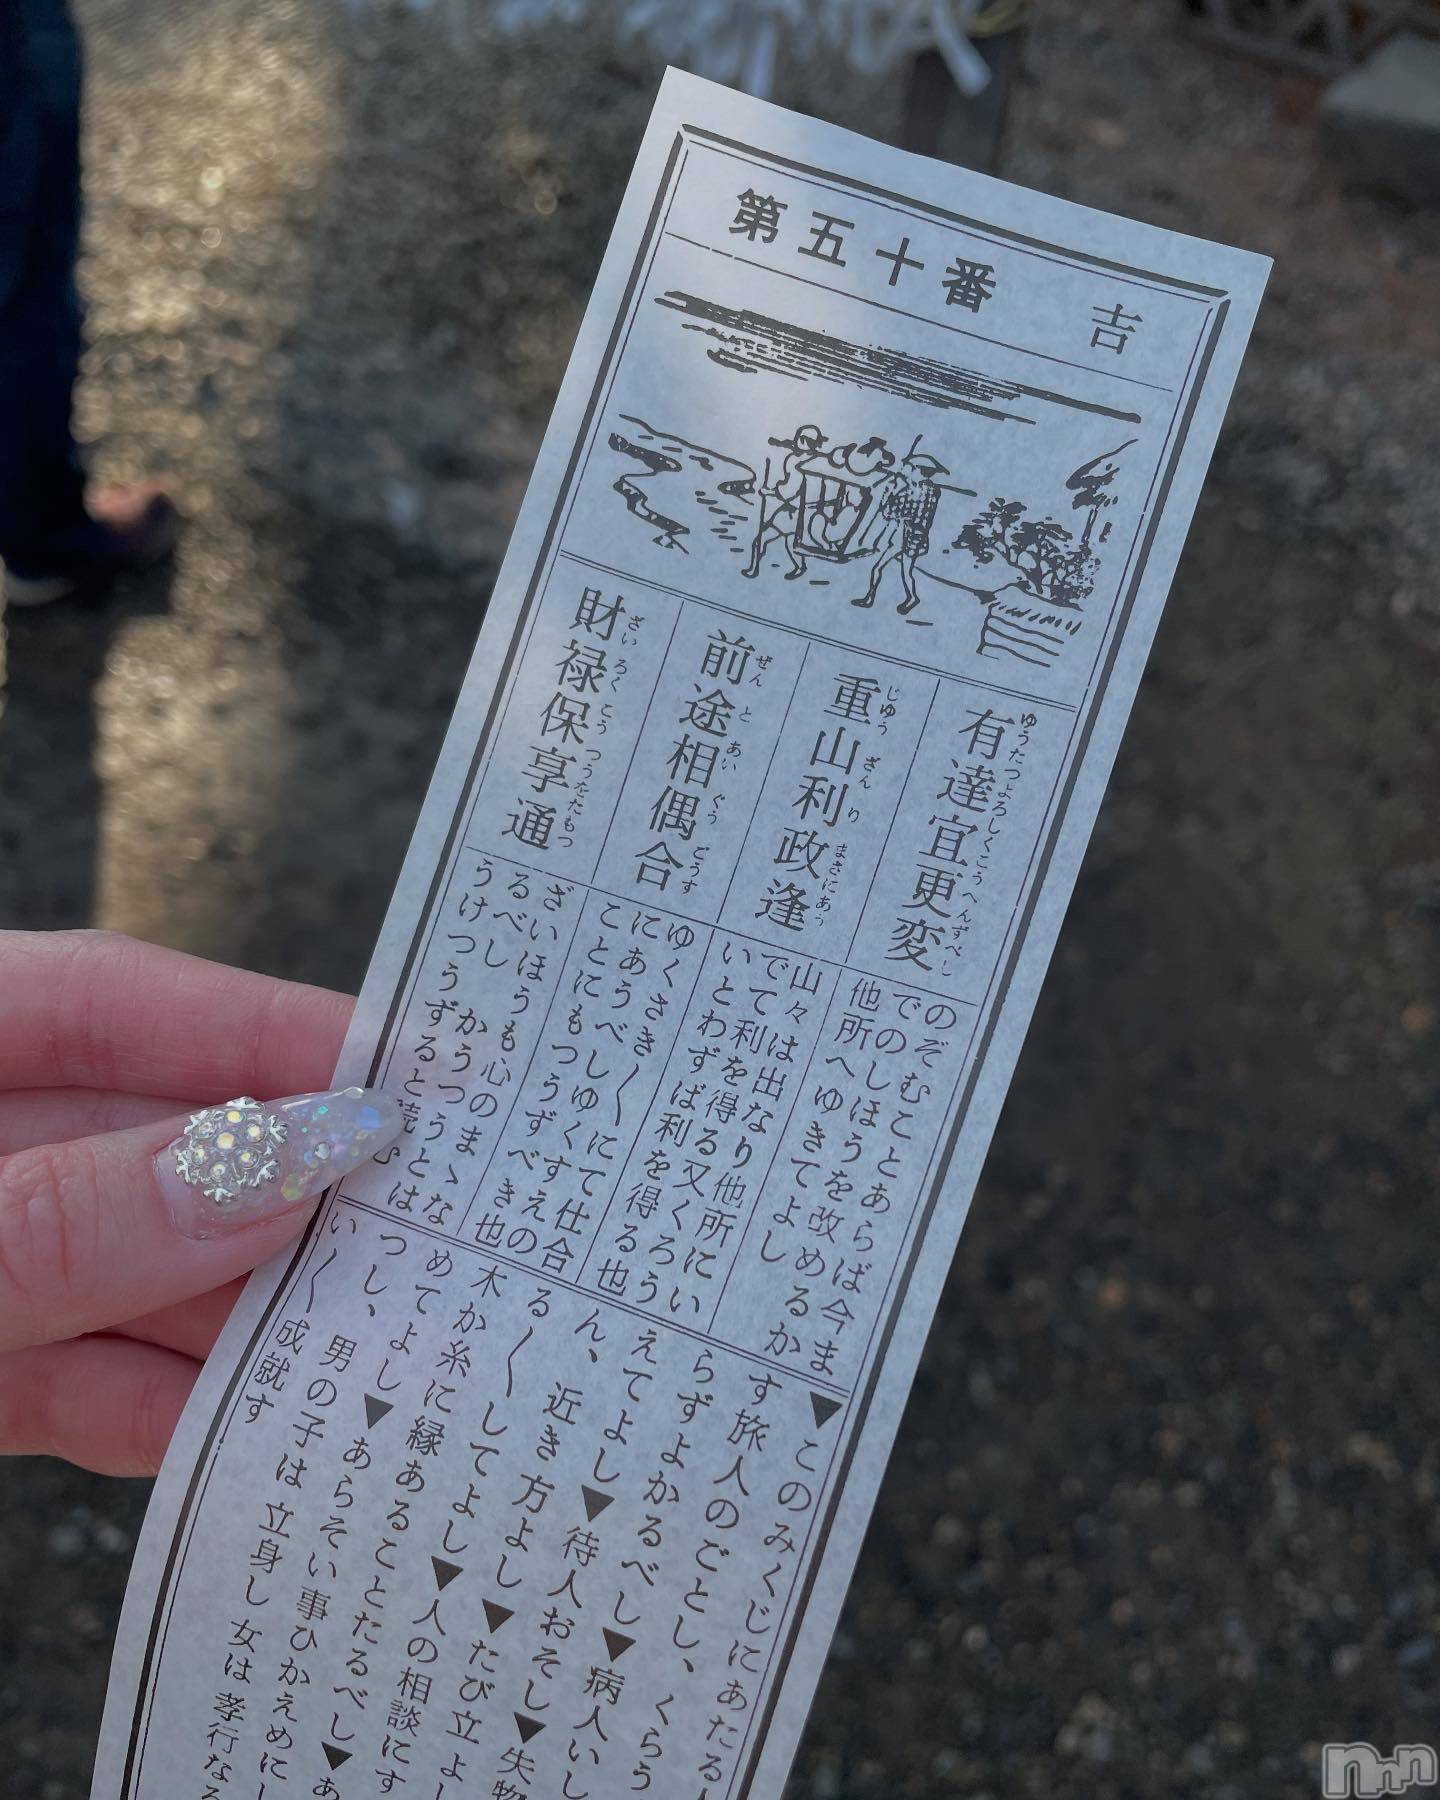 第五十番 吉
有達宜更変
ゆうたつよろしくこうへんずべし
重山利政逢
じゆうざんりまさにあう
前途相偶合
ぜんとあいぐうごうす
財禄保享通
ざいろくこうつうをたもつ
のぞむことあらば今ま
でのしほうを改めるか
他所へゆきてよし
山々は出なり他所にい
でて利を得る又くろう
いとわずば利を得る也
ゆくさき〳〵にて仕合
にあうべしゆくすえの
ことにもつうずべき也
ざいほうも心のまゝな
るべし かうつうとは
うけつうずると読む
▼このみくじにあたる
す旅人のごとし、くらう
らずよかるべし▼病人いし
えてよし▼待人おそし▼失物
ん、近き方よし▼たび立よ
る〳〵してよし▼人の相談にす
木か糸に縁あることたるべし▼あ
めてよし▼あらそい事ひかえめにし
つし、男の子は立身し女は孝行なる
い〳〵成就す
nnn